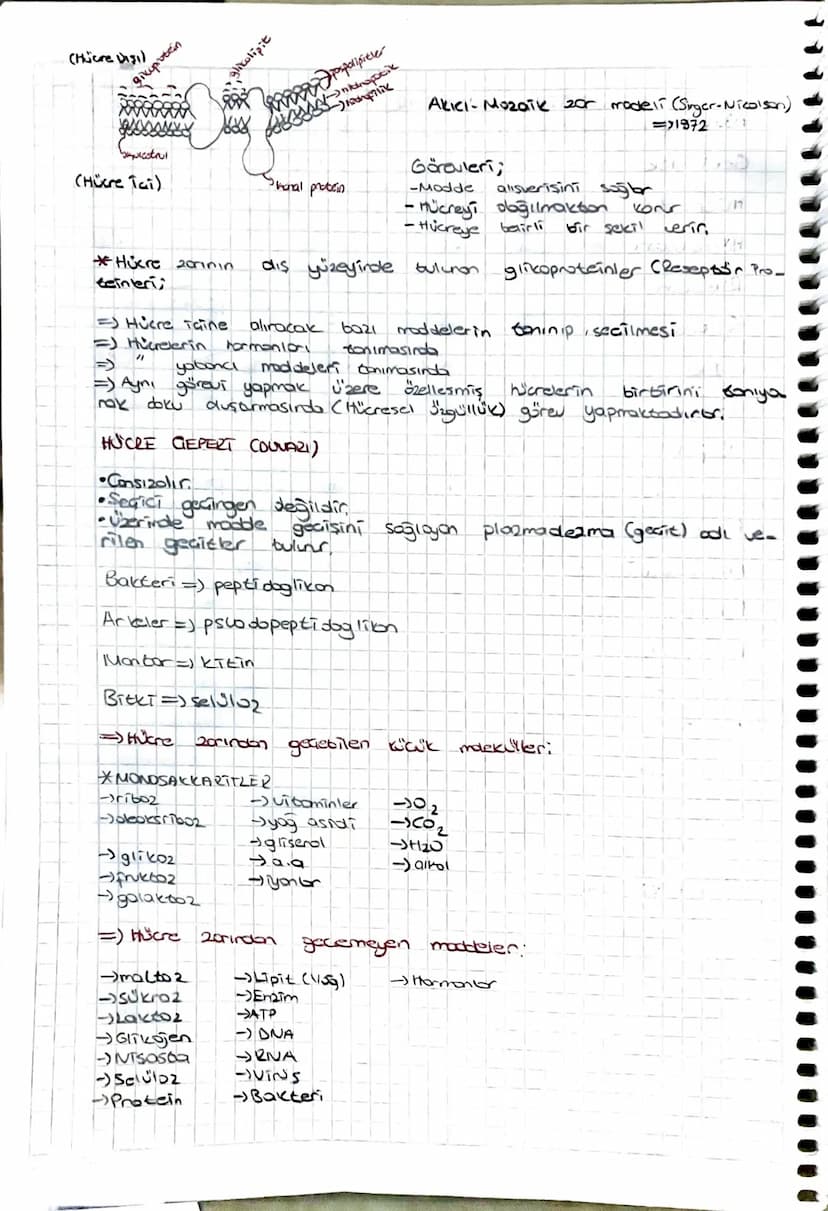 (Hücre Dışı)
glikoprotein
glikolipit
fosfolipitler
hidrofobik
hidrofilik
(Hücre İçi)
Kanal protein
Akıcı-Mozaik zar modeli (Singer-Nicolson)
=>1972
Görevleri;
-Madde alışverişini sağlar
-Hücreyi dağılmaktan korur
-Hücreye belirli bir şekil verir.
*Hücre zarının dış yüzeyinde bulunan glikoproteinler (Reseptör Pro-
teinleri;
=) Hücre içine alınacak bazı maddelerin tanınıp, seçilmesi
=) Hücrelerin hormonları tanımasında
=) " yabancı maddeleri tanımasında
=) Aynı görevi yapmak üzere özelleşmiş hücrelerin birbirini tanıya
rak doku oluşturmasında (Hücresel Özgüllük) görev yapmaktadırlar.
HÜCRE ÇEPERİ (DUVARI)
•Cansızdır.
•Seçici geçirgen değildir.
•Üzerinde madde geçişini sağlayan plazmadezma (geçit) adı ve-
rilen geçitler bulunur.
Bakteri =) peptidoglikan
Arkeler =) psödopeptidoglikan
Mantar =) kitin
Bitki =) selüloz
=) Hücre zarından geçebilen küçük moleküller:
*MONOSAKKARİTLER
->riboz ->vitaminler ->O2
->deoksiriboz ->yağ asidi ->CO2
->gliserol ->H2O
->glikoz ->a.a ->alkol
->fruktoz ->iyonlar
->galaktoz
=) Hücre zarından geçemeyen maddeler:
->maltoz ->Lipit (Yağ) ->Hormonlar
->sükroz ->Enzim
->Laktoz ->ATP
->Glikojen ->DNA
->Nişasta ->RNA
->Selüloz ->Virüs
->Protein ->Bakteri